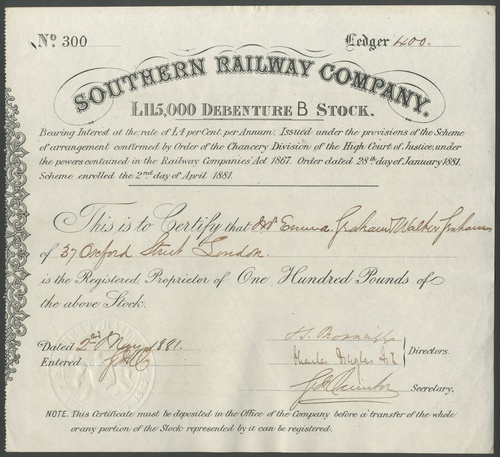 No. 300 Ledger 400.
SOUTHERN RAILWAY COMPANY.
£115,000 DEBENTURE B STOCK.
Bearing Interest at the rate of £4 per Cent. per Annum. Issued under the provisions of the Scheme
of arrangement confirmed by Order of the Chancery Division of the High Court of Justice, under
the powers contained in the Railway Companies' Act 1867. Order dated 28th day of January 1881.
Scheme enrolled the 2nd day of April 1881.
This is to Certify that Emma Graham & Walter Graham
of 37 Oxford Street London
is the Registered Proprietor of One Hundred Pounds of
the above Stock.
Dated 2nd May 1881.
Entered
Charles
Directors.
Secretary.
NOTE. This Certificate must be deposited in the Office of the Company before a transfer of the whole
or any portion of the Stock represented by it can be registered.